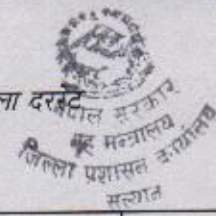 ला दररेट
नेपाल सरकार
गृह मन्त्रालय
जिल्ला प्रशासन कार्यालय
सल्यान